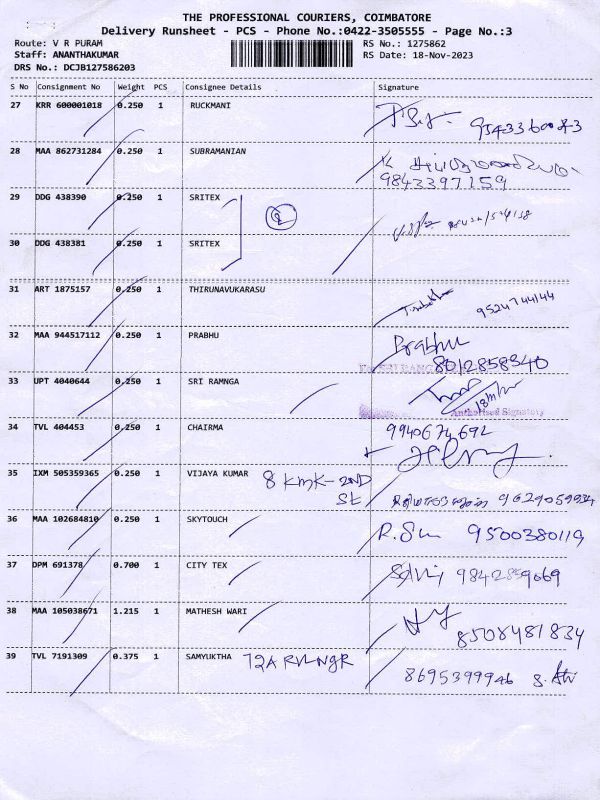 THE PROFESSIONAL COURIERS, COIMBATORE
Delivery Runsheet - PCS - Phone No.:0422-3505555 - Page No.:3
Route: V R PURAM RS No.: 1275862
Staff: ANANTHAKUMAR RS Date: 18-Nov-2023
DRS No.: DCJB127586203
S No Consignment No Weight PCS Consignee Details Signature
27 KRR 600001018 0.250 1 RUCKMANI
28 MAA 862731284 0.250 1 SUBRAMANIAN
9843397159
29 DDG 438390 0.250 1 SRITEX
2
30 DDG 438381 0.250 1 SRITEX
31 ART 1875157 0.250 1 THIRUNAVUKARASU 9524744144
32 MAA 944517112 0.250 1 PRABHU Prabhu
8012858340
33 UPT 4040644 0.250 1 SRI RAMNGA
Authorised Signatory
34 TVL 404453 0.250 1 CHAIRMA 9940674692
35 IXM 505359365 0.250 1 VIJAYA KUMAR 8 KMK-2ND
St 9629059934
36 MAA 102684810 0.250 1 SKYTOUCH 9500380119
37 DPM 691378 0.700 1 CITY TEX 9842859069
38 MAA 105038671 1.215 1 MATHESH WARI
8508481834
39 TVL 7191309 0.375 1 SAMYUKTHA 72A RVL NGR
8695399946